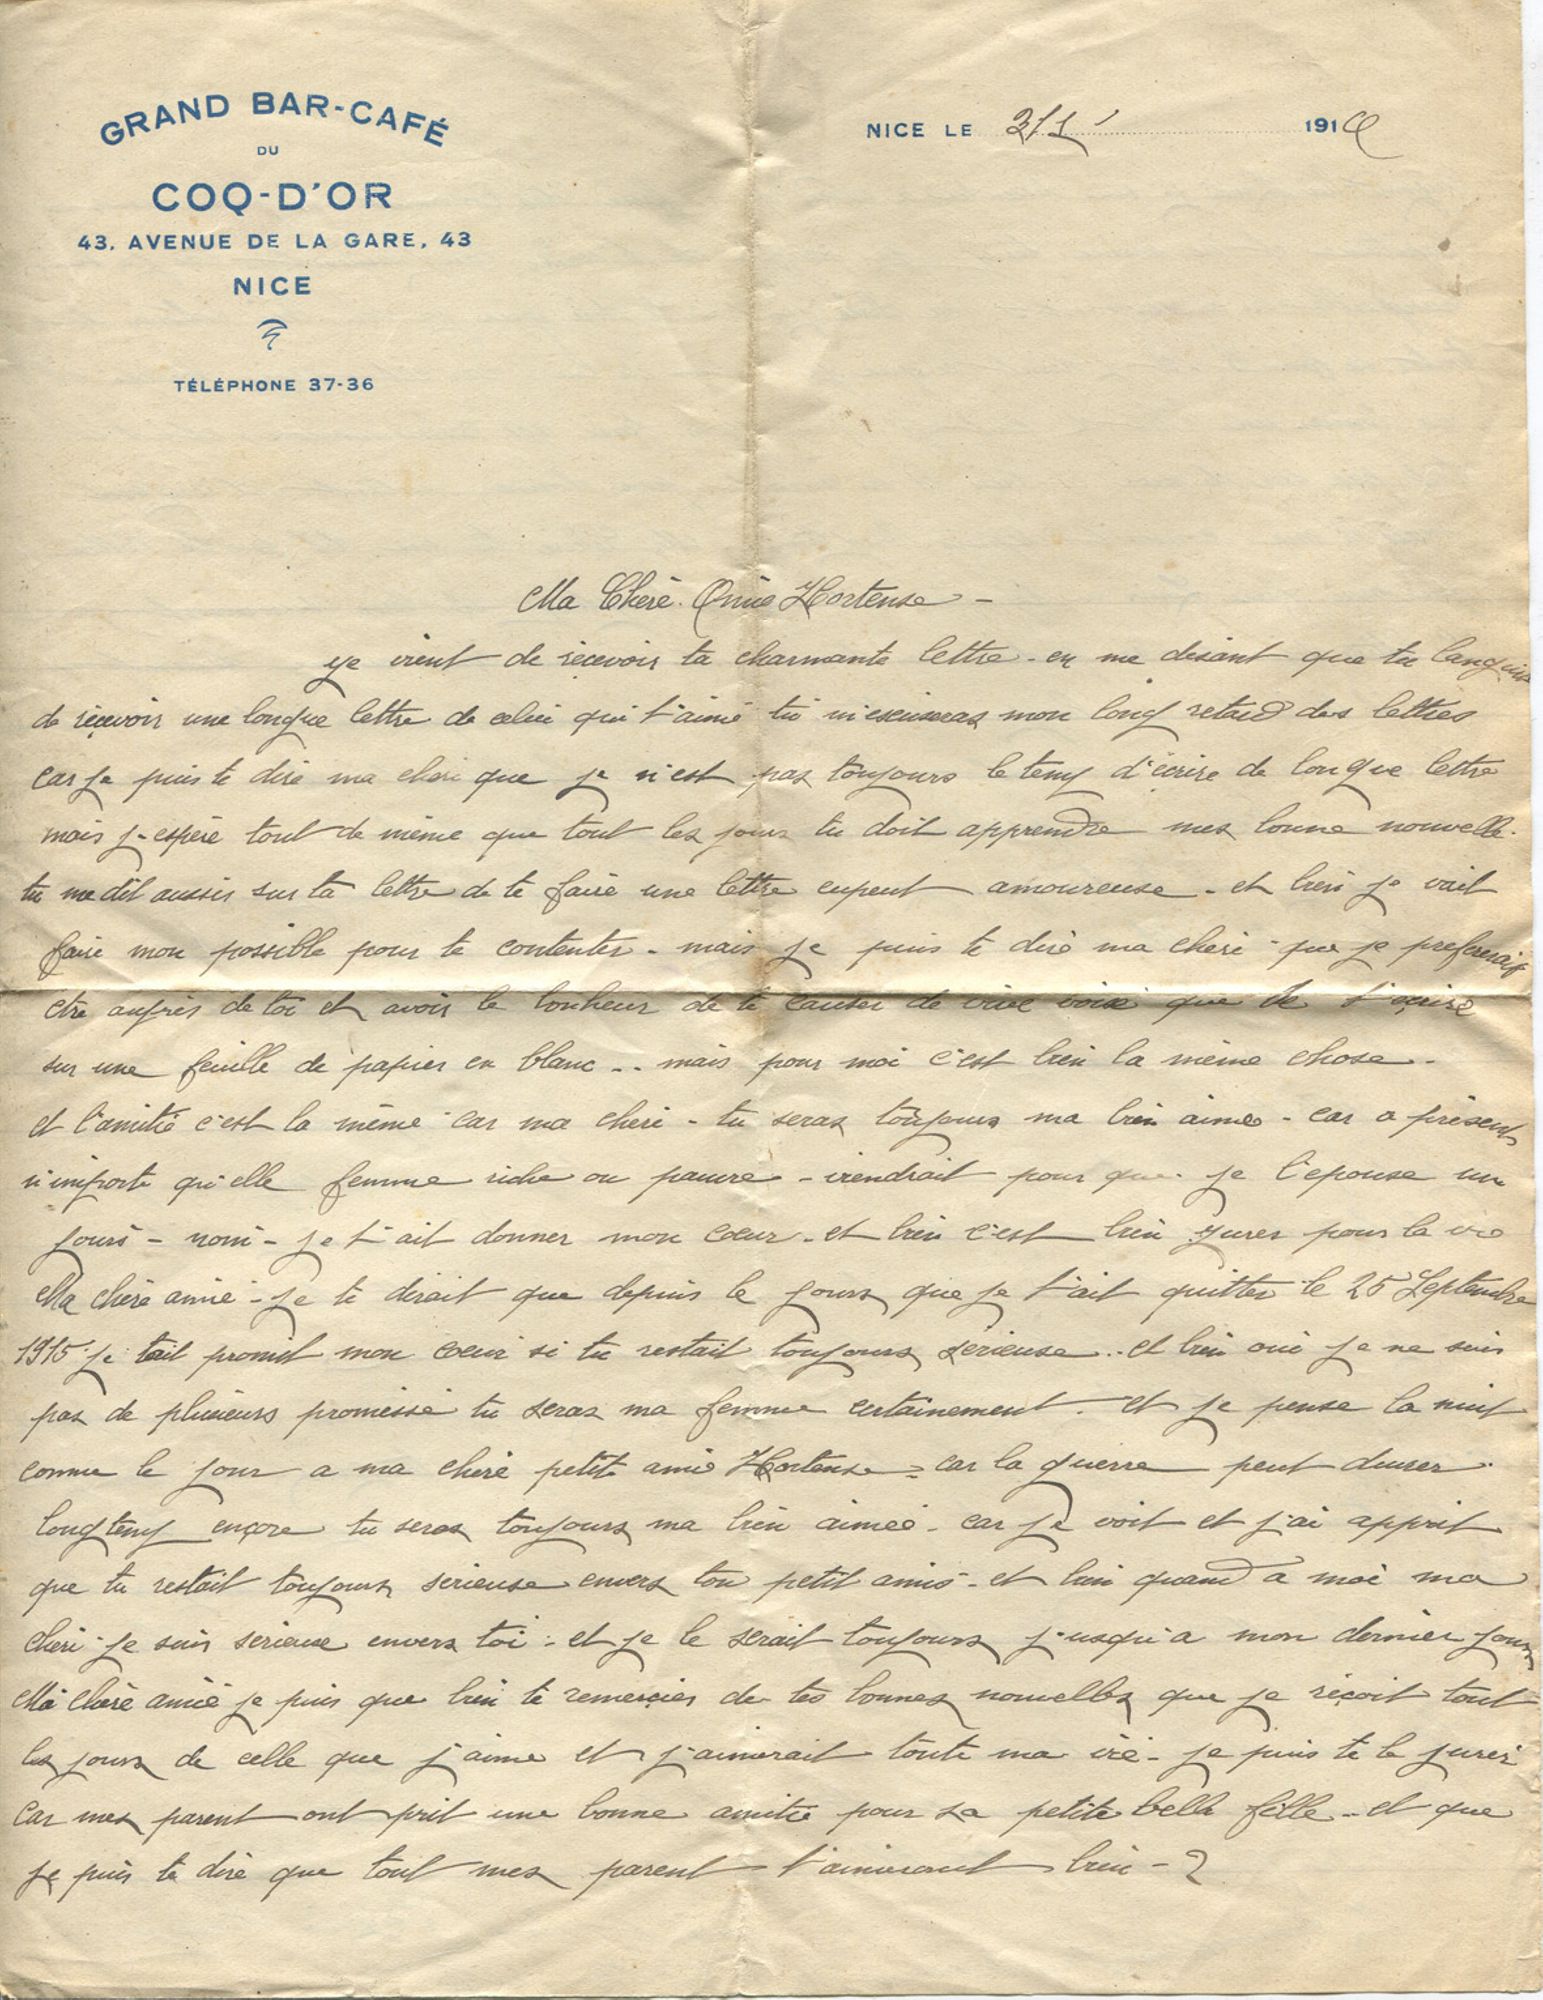 GRAND BAR-CAFÉ
DU
COQ-D'OR
43, AVENUE DE LA GARE, 43
NICE
TÉLÉPHONE 37-36
NICE LE 31/1 191
Ma Cherè Amie Hortense -
je vient de recevoir ta charmante lettre - en me disant que tu languis
de recevoir une longue lettre de celui qui t'aimè tu m'escuseras mon long retard des lettres
car je puis te dire ma cheri que je n'est pas toujours le temp d'écrire de longue lettre
mais j-espère tout de même que tout les jours tu doit apprendre mes bonne nouvelle.
tu me dit aussis sur ta lettre de te faire une lettre eupeut amoureuse - et bien je vait
faire mon possible pour te contenter - mais je puis te dire ma cheri - que je prefererait
etre auprès de toi et avoir le bonheur de te causer de vive voix que de t'ecrire
sur une feuille de papier en blanc - .. mais pour moi c'est bien la même chose -
et l'amitié c'est la même car ma cheri - tu seras toujours ma bien aimeé - car a présent
n'importe qu'elle femme riche ou pauvre - viendrait pour que je l'epouse un
jours - non - je t'ait donner mon coeur - et bien c'est bien jurer pour la vie
Ma chère amie - je te dirait que depuis le jours que je t'ait quitter le 25 Septembre
1915 je tait promit mon coeur si tu restait toujours serieuse .. et bien oui je ne suis
pas de plusieurs promesse tu seras ma femme certainement . et je pense la nuit
comme le jour a ma cherè petite amie Hortense - car la guerre peut durer
longtemp encore tu seras toujours ma bien aimeé - car je voit et j'ai apprit
que tu restait toujours serieuse envers ton petit amis - et bien quand a moi ma
cheri - je suis serieuse envers toi - et je le serait toujours j'usqu'a mon dernier jours
Ma cherè amie je puis que bien te remercier de tes bonnes nouvelles que je reçoit tout
les jours de celle que j'aime et j'aimerait toute ma vie - je puis te le jurer
car mes parent ont prit une bonne amitie pour sa petite belle fille - et que
je puis te dire que tout mes parent t'aimeront bien - ?